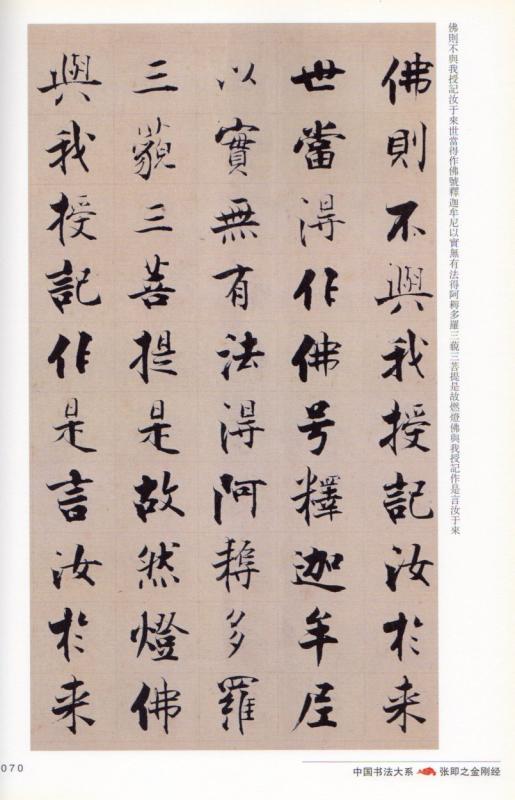 佛則不與我授記汝於来
世當淂作佛号釋迦牟尼
以實無有法淂阿耨多羅
三藐三菩提是故然燈佛
與我授記作是言汝於来
佛則不與我授記汝于來世當得作佛號釋迦牟尼以實無有法得阿耨多羅三藐三菩提是故燃燈佛與我授記作是言汝于來
070
中国书法大系 张即之金刚经